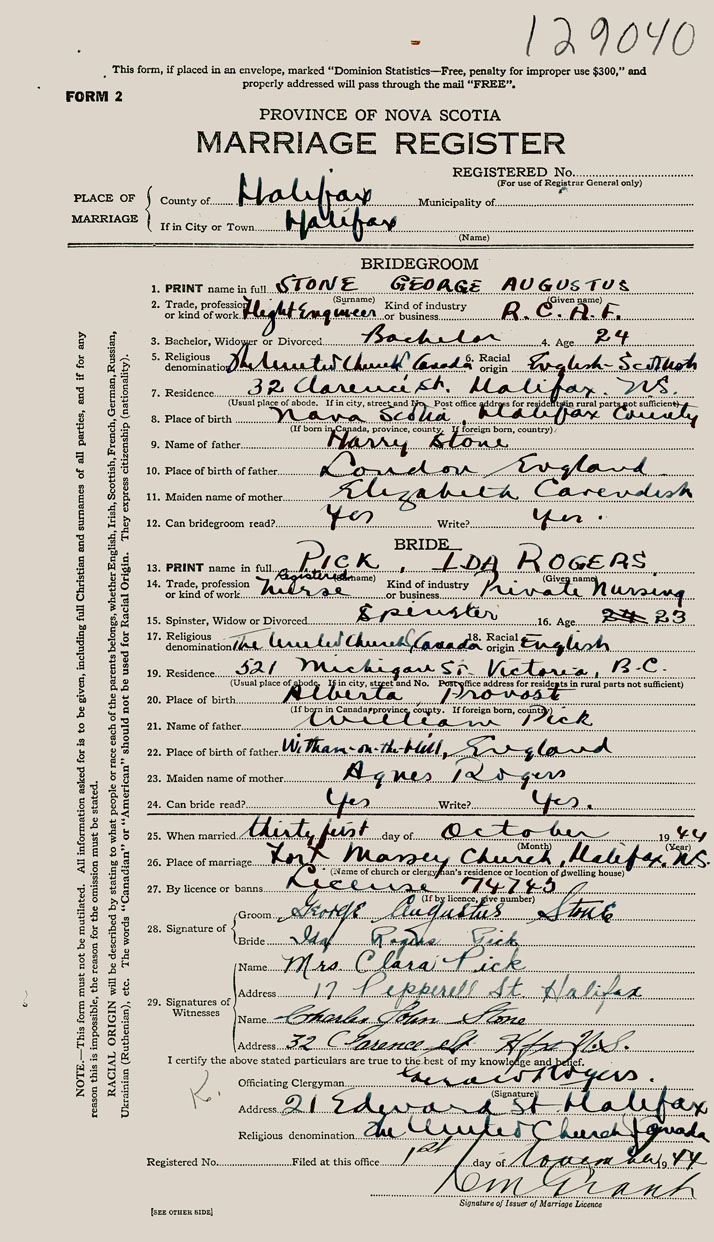 129040
This form, if placed in an envelope, marked "Dominion Statistics—Free, penalty for improper use $300," and
properly addressed will pass through the mail "FREE".
FORM 2
PROVINCE OF NOVA SCOTIA
MARRIAGE REGISTER
REGISTERED No.
(For use of Registrar General only)
PLACE OF MARRIAGE
County of Halifax Municipality of
If in City or Town Halifax
(Name)
BRIDEGROOM
1. PRINT name in full STONE GEORGE AUGUSTUS
(Surname) (Given name)
2. Trade, profession or kind of work Flight Engineer Kind of industry or business R.C.A.F.
3. Bachelor, Widower or Divorced Bachelor 4. Age 24
5. Religious denomination The United Church Canada 6. Racial origin English-Scottish
7. Residence 32 Clarence St. Halifax. N.S.
(Usual place of abode. If in city, street and No. Post office address for residents in rural parts not sufficient)
8. Place of birth Nova Scotia, Halifax County
(If born in Canada, province, county. If foreign born, country)
9. Name of father Harry Stone
10. Place of birth of father London England
11. Maiden name of mother Elizabeth Cavendish
12. Can bridegroom read? Yes Write? Yes.
BRIDE
13. PRINT name in full PICK, IDA ROGERS.
(Surname) (Given name)
14. Trade, profession or kind of work Registered Nurse Kind of industry or business Private Nursing
15. Spinster, Widow or Divorced Spinster 16. Age 24 23
17. Religious denomination The United Church, Canada 18. Racial origin English
19. Residence 521 Michigan St. Victoria, B.C.
(Usual place of abode. If in city, street and No. Post office address for residents in rural parts not sufficient)
20. Place of birth Alberta, Provost
(If born in Canada, province, county. If foreign born, country)
21. Name of father William Pick
22. Place of birth of father Witham-on-the-Hill, England
23. Maiden name of mother Agnes Rogers
24. Can bride read? Yes Write? Yes.
25. When married thirty first day of October 1944
(Month) (Year)
26. Place of marriage Fort Massey Church, Halifax, N.S.
(Name of church or clergyman's residence or location of dwelling house)
27. By licence or banns License 74745
(If by licence, give number)
28. Signature of
Groom George Augustus Stone
Bride Ida Rogers Pick
29. Signatures of Witnesses
Name Mrs. Clara Pick
Address 17 Pepperell St. Halifax
Name Charles John Stone
Address 32 Clarence St Hfx N.S.
I certify the above stated particulars are true to the best of my knowledge and belief.
Officiating Clergyman Rogers.
(Signature)
Address 21 Edward St Halifax
Religious denomination The United Church Canada
Registered No. Filed at this office 1st day of November 1944
Grant
Signature of Issuer of Marriage Licence
[SEE OTHER SIDE]
NOTE.—This form must not be mutilated. All information asked for is to be given, including full Christian and surnames of all parties, and if for any
reason this is impossible, the reason for the omission must be stated.
RACIAL ORIGIN will be described by stating to what people or race each of the parents belongs, whether English, Irish, Scottish, French, German, Russian,
Ukrainian (Ruthenian), etc. The words "Canadian" or "American" should not be used for Racial Origin. They express citizenship (nationality).